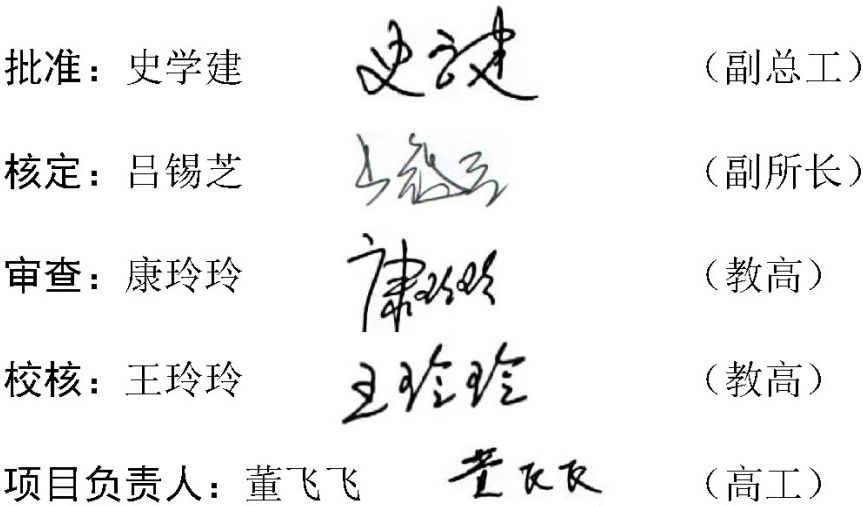 批准：史学建 史学建 （副总工）
核定：吕锡芝 （副所长）
审查：康玲玲 康玲玲 （教高）
校核：王玲玲 王玲玲 （教高）
项目负责人：董飞飞 董飞飞 （高工）